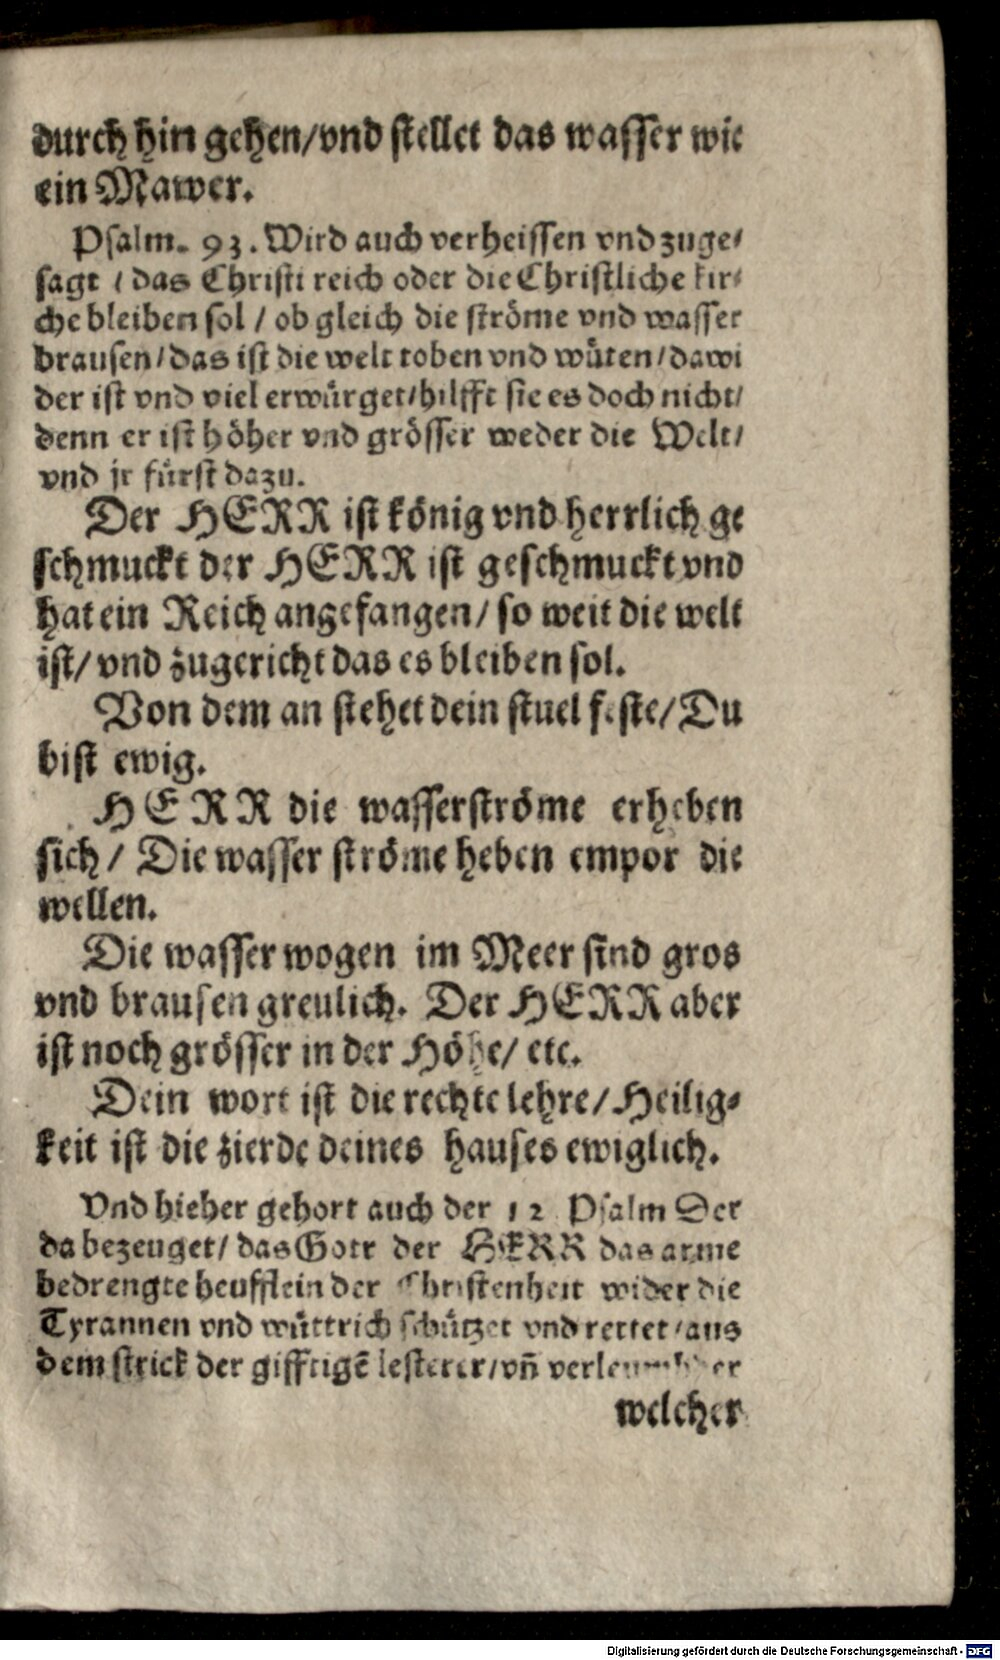 durch hin gehen/vnd stellet das wasser wie
ein Mawer.
Psalm. 93. Wird auch verheissen vnd zuge-
sagt / das Christi reich oder die Christliche kir-
che bleiben sol / ob gleich die ströme vnd wasser
brausen/das ist die welt toben vnd wüten/dawi
der ist vnd viel erwürget/hilfft sie es doch nicht/
denn er ist höher vnd grösser weder die Welt/
vnd jr fürst dazu.
Der HERR ist könig vnd herrlich ge
schmuckt der HERR ist geschmuckt vnd
hat ein Reich angefangen/ so weit die welt
ist/ vnd zugericht das es bleiben sol.
Von dem an stehet dein stuel feste/Du
bist ewig.
HERR die wasserströme erheben
sich/ Die wasser ströme heben empor die
wellen.
Die wasser wogen im Meer sind gros
vnd brausen greulich. Der HERR aber
ist noch grösser in der Höhe/ etc.
Dein wort ist die rechte lehre/Heilig-
keit ist die zierde deines hauses ewiglich.
Vnd hieher gehort auch der 12 Psalm Der
da bezeuget/ das Gott der HERR das arme
bedrengte heufflein der Christenheit wider die
Tyrannen vnd wüttrich schützet vnd rettet/aus
dem strick der gifftigē lesterer/vñ
welcher
Digitalisierung gefördert durch die Deutsche Forschungsgemeinschaft - DFG